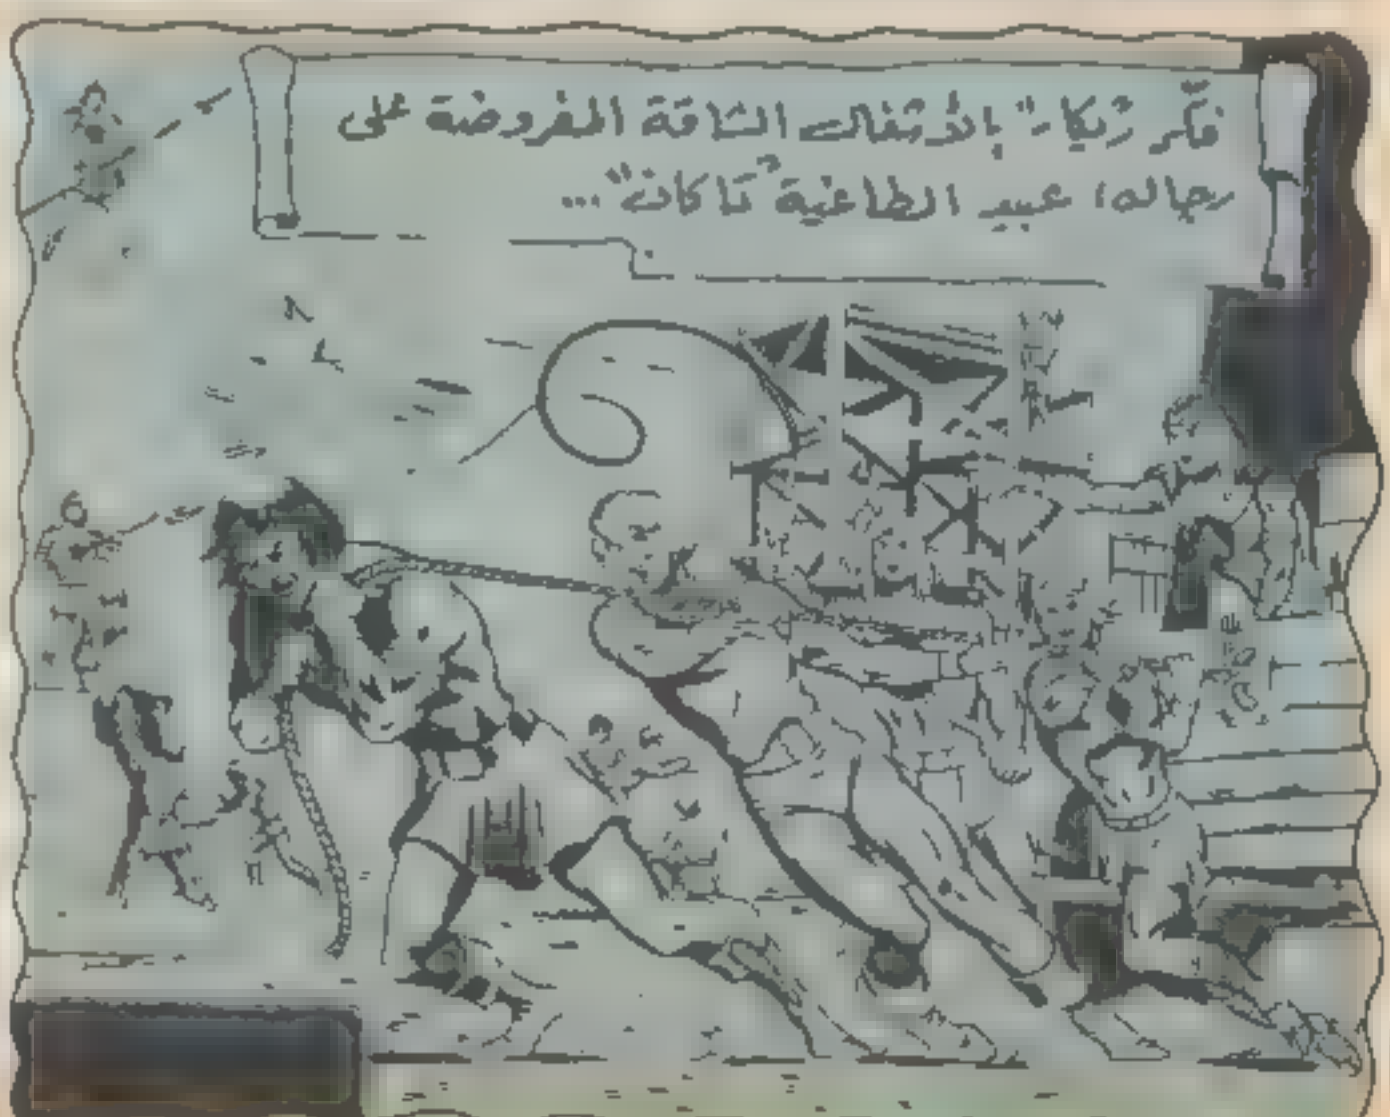 فكّر "زيكار" بالأشغال الشاقة المفروضة على
رجاله، عبيد الطاغية "تاكان"...